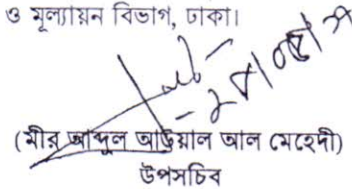 ও মূল্যায়ন বিভাগ, ঢাকা।
(মীর আব্দুল আউয়াল আল মেহেদী)
উপসচিব